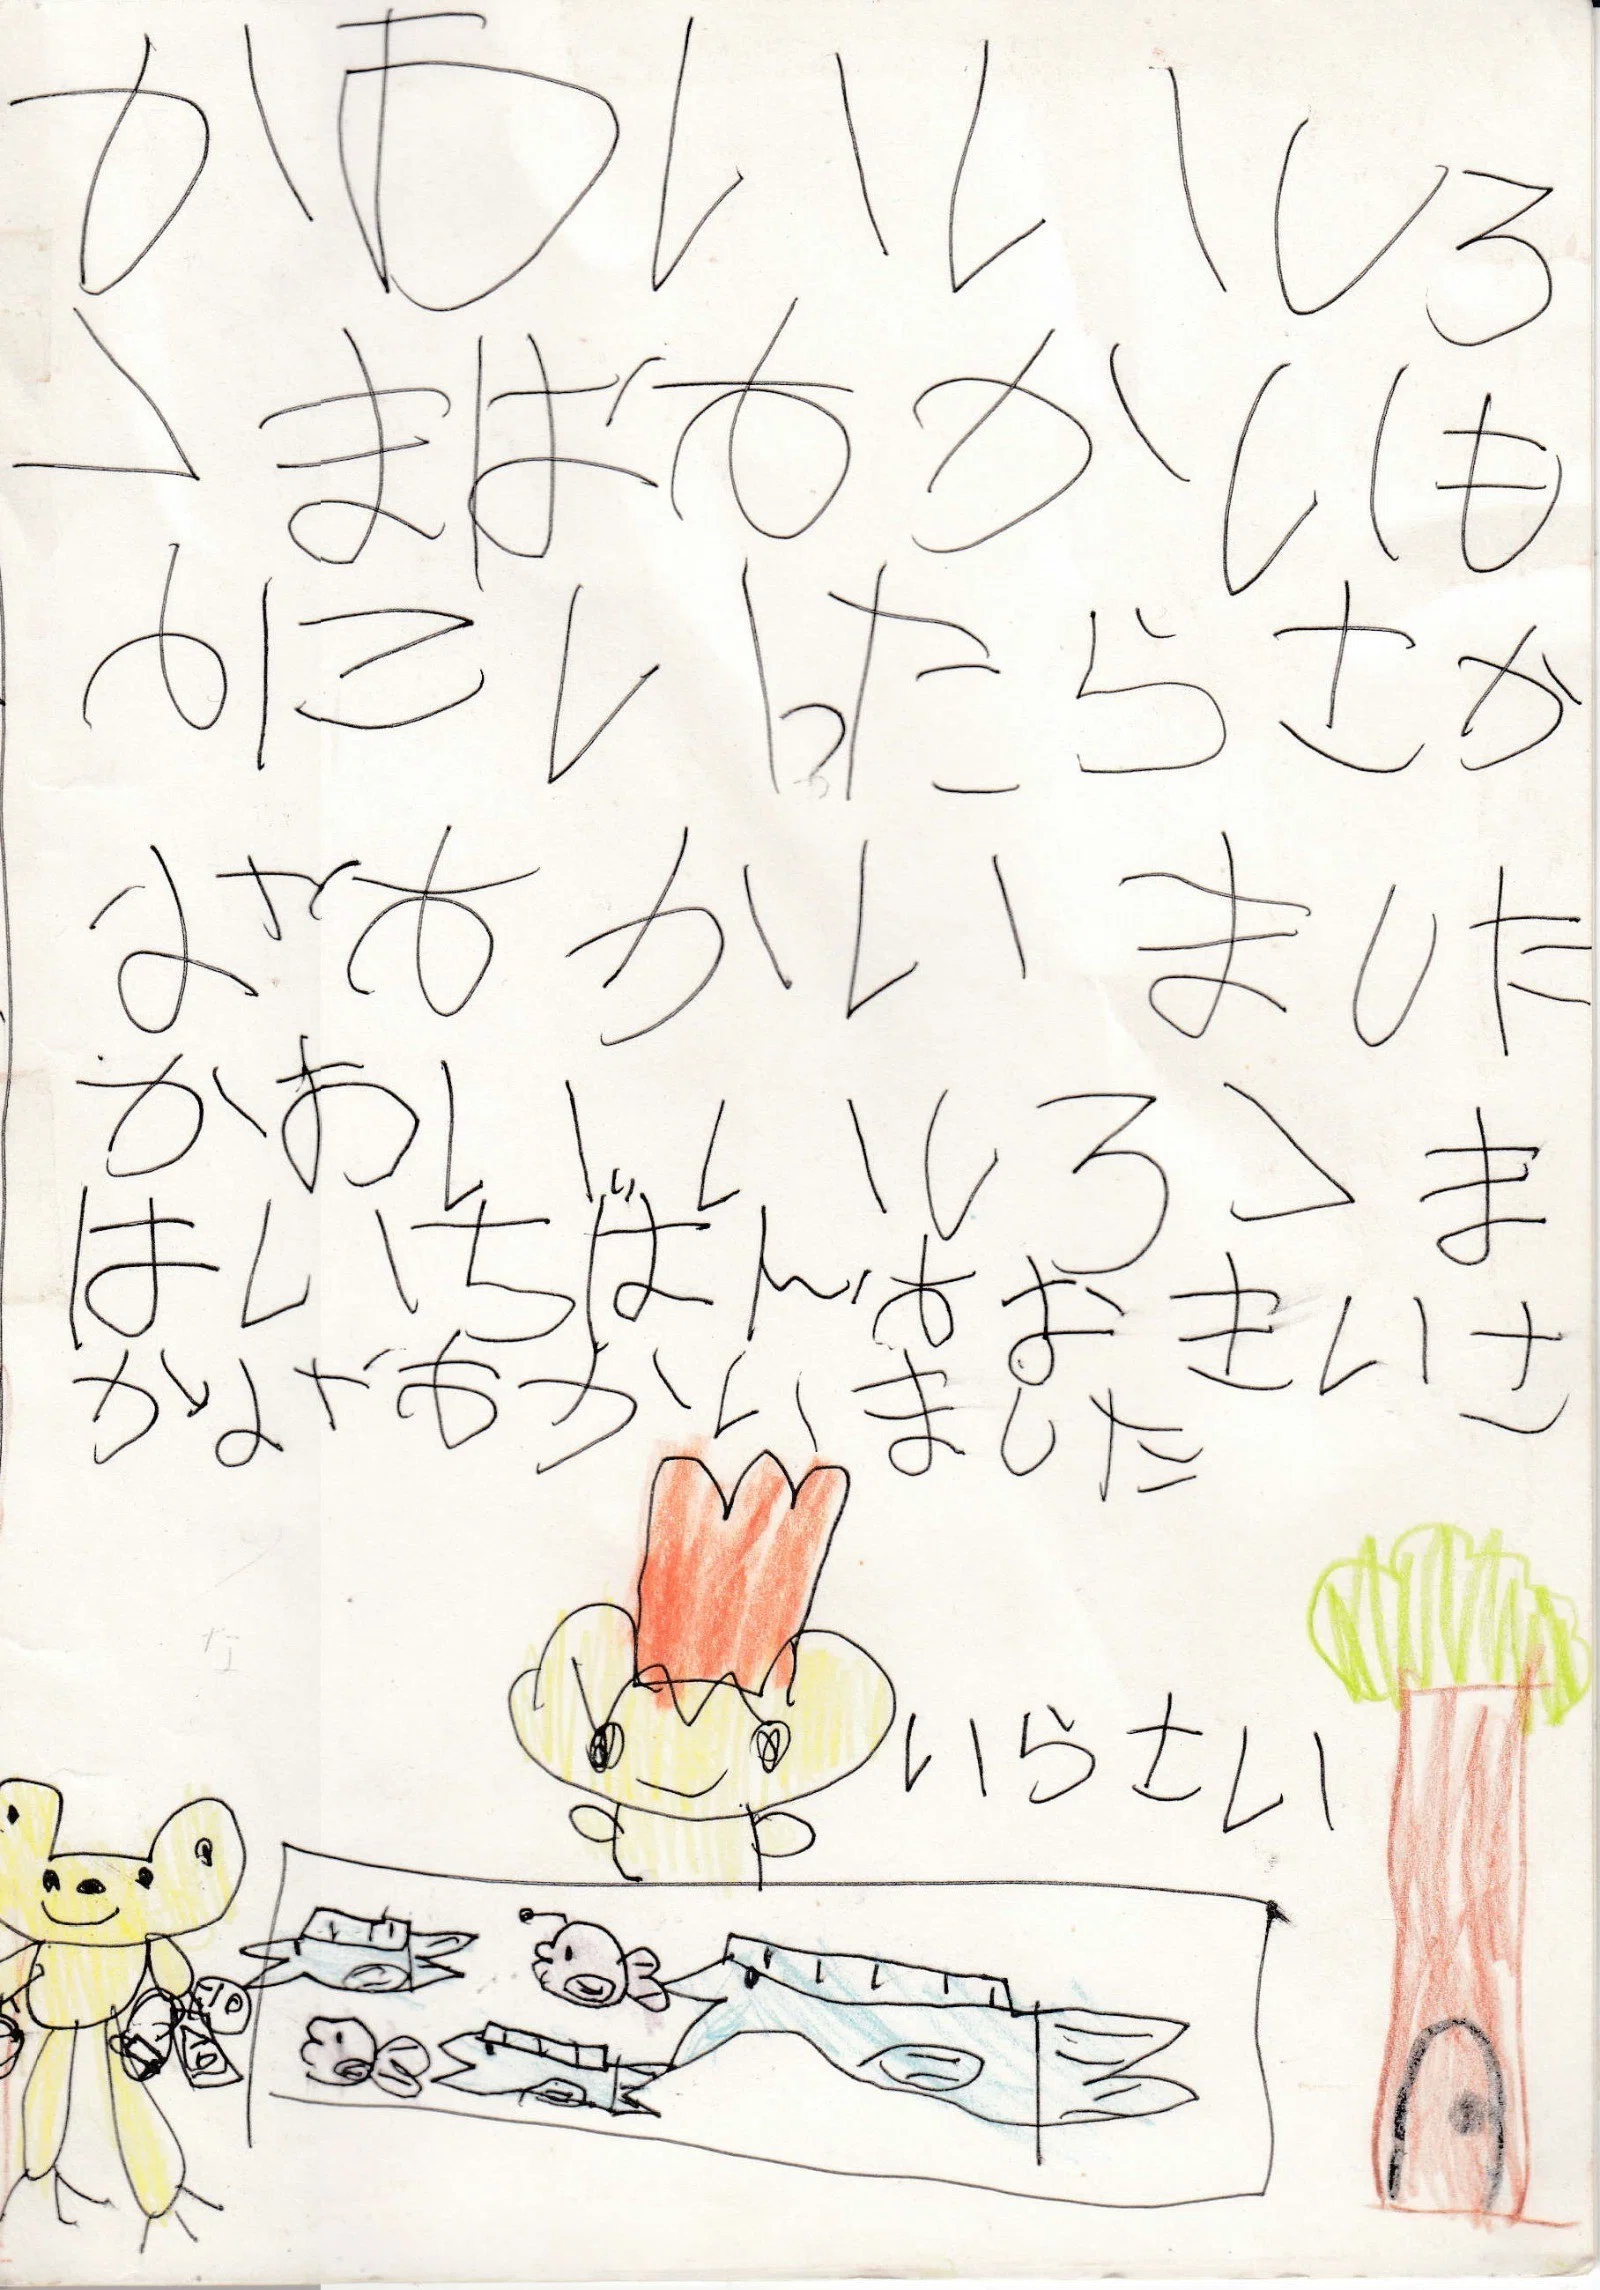 かわいいしろ
くまはおかいも
のにいったらさか
なおかいました
かわいいしろくま
はいちばんおおきいさ
かなおかいました
いらさい